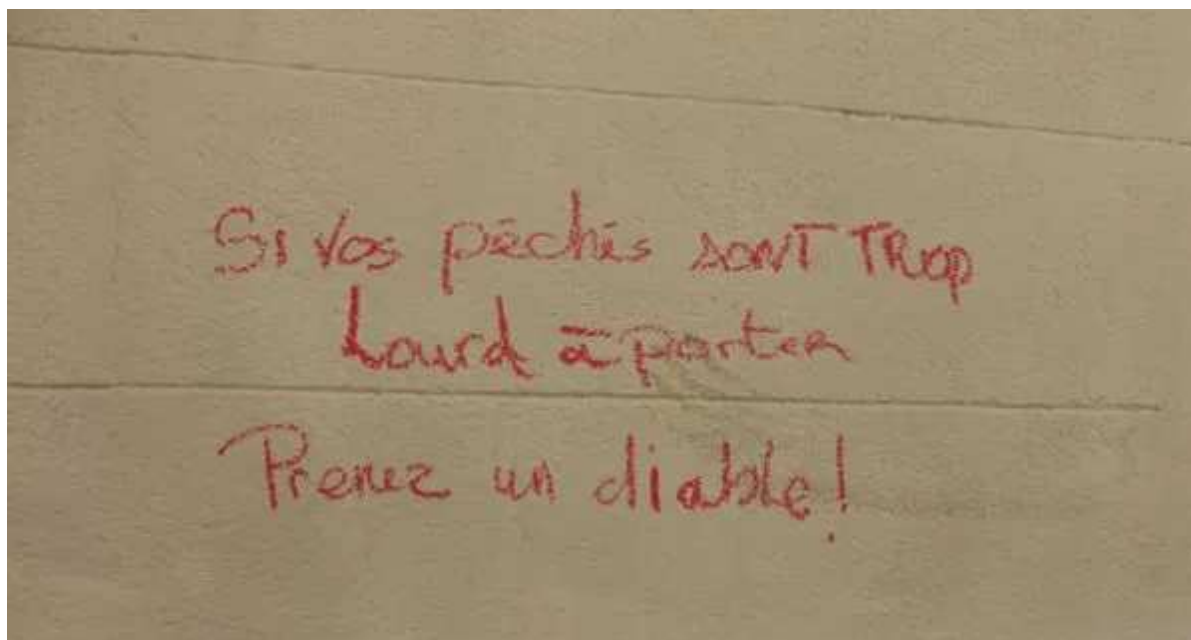 Si vos péchés sont TROP
Lourd à porter
Prenez un diable!